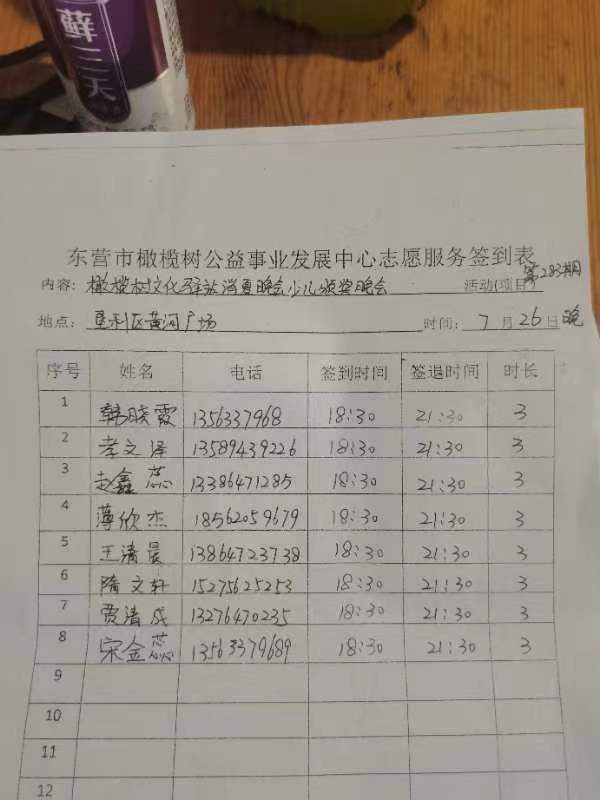 藓三天
东营市橄榄树公益事业发展中心志愿服务签到表
第283期
内容: 橄榄树文化驿站消夏晚会少儿颁奖晚会 活动(项目)
地点: 垦利区黄河广场 时间: 7月26日晚
序号 姓名 电话 签到时间 签退时间 时长
1 韩晓霞 1356337968 18:30 21:30 3
2 李文泽 13589439226 18:30 21:30 3
3 赵鑫蕊 13386471285 18:30 21:30 3
4 薄欣杰 18562059679 18:30 21:30 3
5 王清晨 13864723738 18:30 21:30 3
6 隋文轩 15275625253 18:30 21:30 3
7 贾清成 13276470235 18:30 21:30 3
8 宋金蕊 13563379689 18:30 21:30 3
9
10
11
12